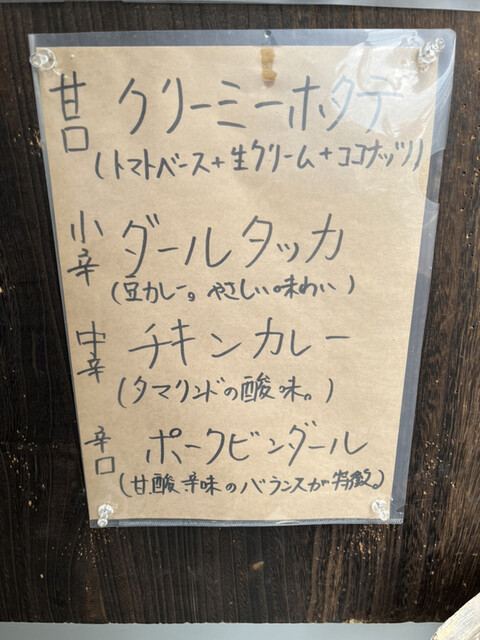 甘口 クリーミーホタテ
(トマトベース+生クリーム+ココナッツ)
小辛 ダールタッカ
(豆カレー。やさしい味わい)
中辛 チキンカレー
(タマリンドの酸味。)
辛口 ポークビンダール
(甘酸辛味のバランスが特徴。)